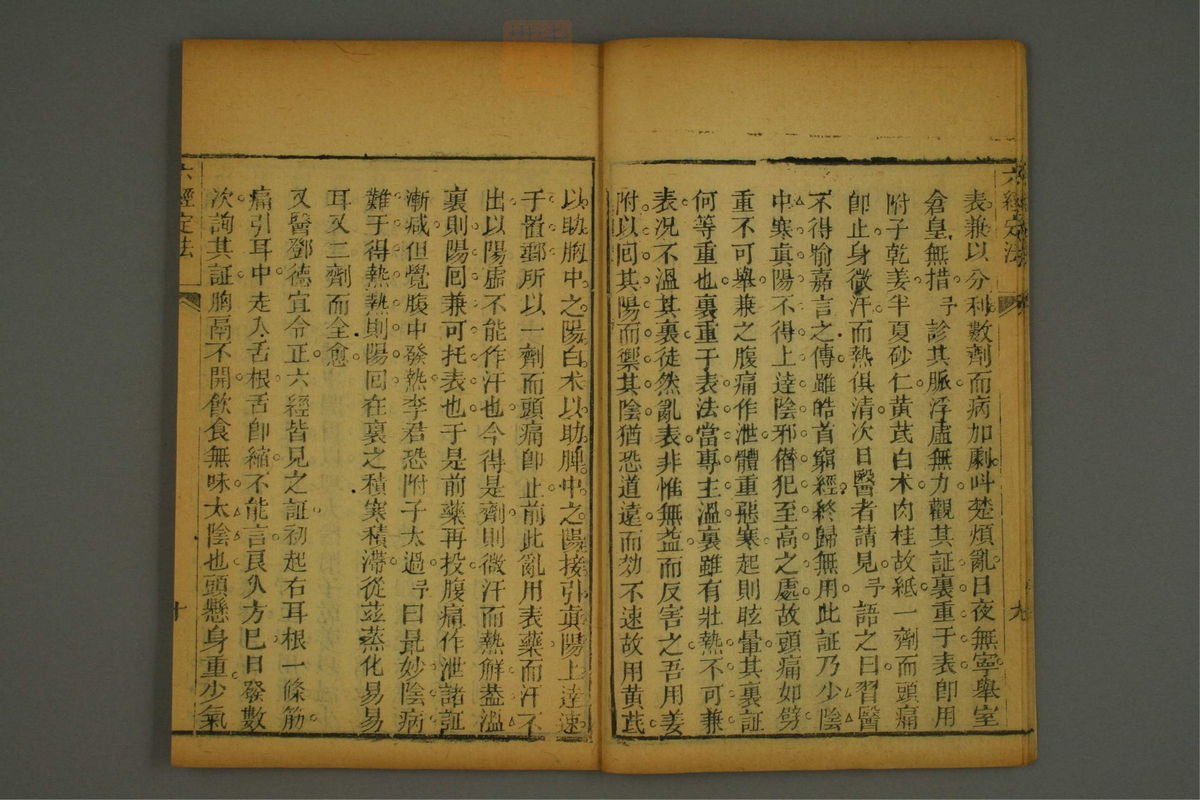 六經定法
九
表兼以分利數劑而病加劇叫楚煩亂日夜無寧舉室
倉皇無措予診其脈浮虛無力觀其証裏重于表卽用
附子乾姜半夏砂仁黃芪白术肉桂故紙一劑而頭痛
卽止身微汗而熱俱清次日醫者請見予語之曰習醫
不得喻嘉言之傳雖皓首窮經終歸無用此証乃少陰
中寒眞陽不得上逹陰邪僭犯至高之處故頭痛如劈
重不可舉兼之腹痛作泄體重惡寒起則眩暈其裏証
何等重也裏重于表法當專主溫裏雖有壯熱不可兼
表况不溫其裏徒然亂表非惟無益而反害之吾用姜
附以囘其陽而禦其陰猶恐道遠而効不速故用黃芪
以助胸中之陽白术以助脾中之陽接引眞陽上逹速
于置郵所以一劑而頭痛卽止前此亂用表藥而汗不
出以陽虛不能作汗也今得是劑則微汗而熱解葢溫
裏則陽囘兼可托表也于是前藥再投腹痛作泄諸証
漸减但覺腹中發熱李君恐附子太過予曰最妙陰病
難于得熱熱則陽囘在裏之積寒積滯從茲蒸化易易
耳又二劑而全愈
又醫鄧德宜令正六經皆見之証初起右耳根一條筋
痛引耳中走入舌根舌卽縮不能言良久方已日發數
次詢其証胸鬲不開飲食無味太陰也頭懸身重少氣
六經定法
十